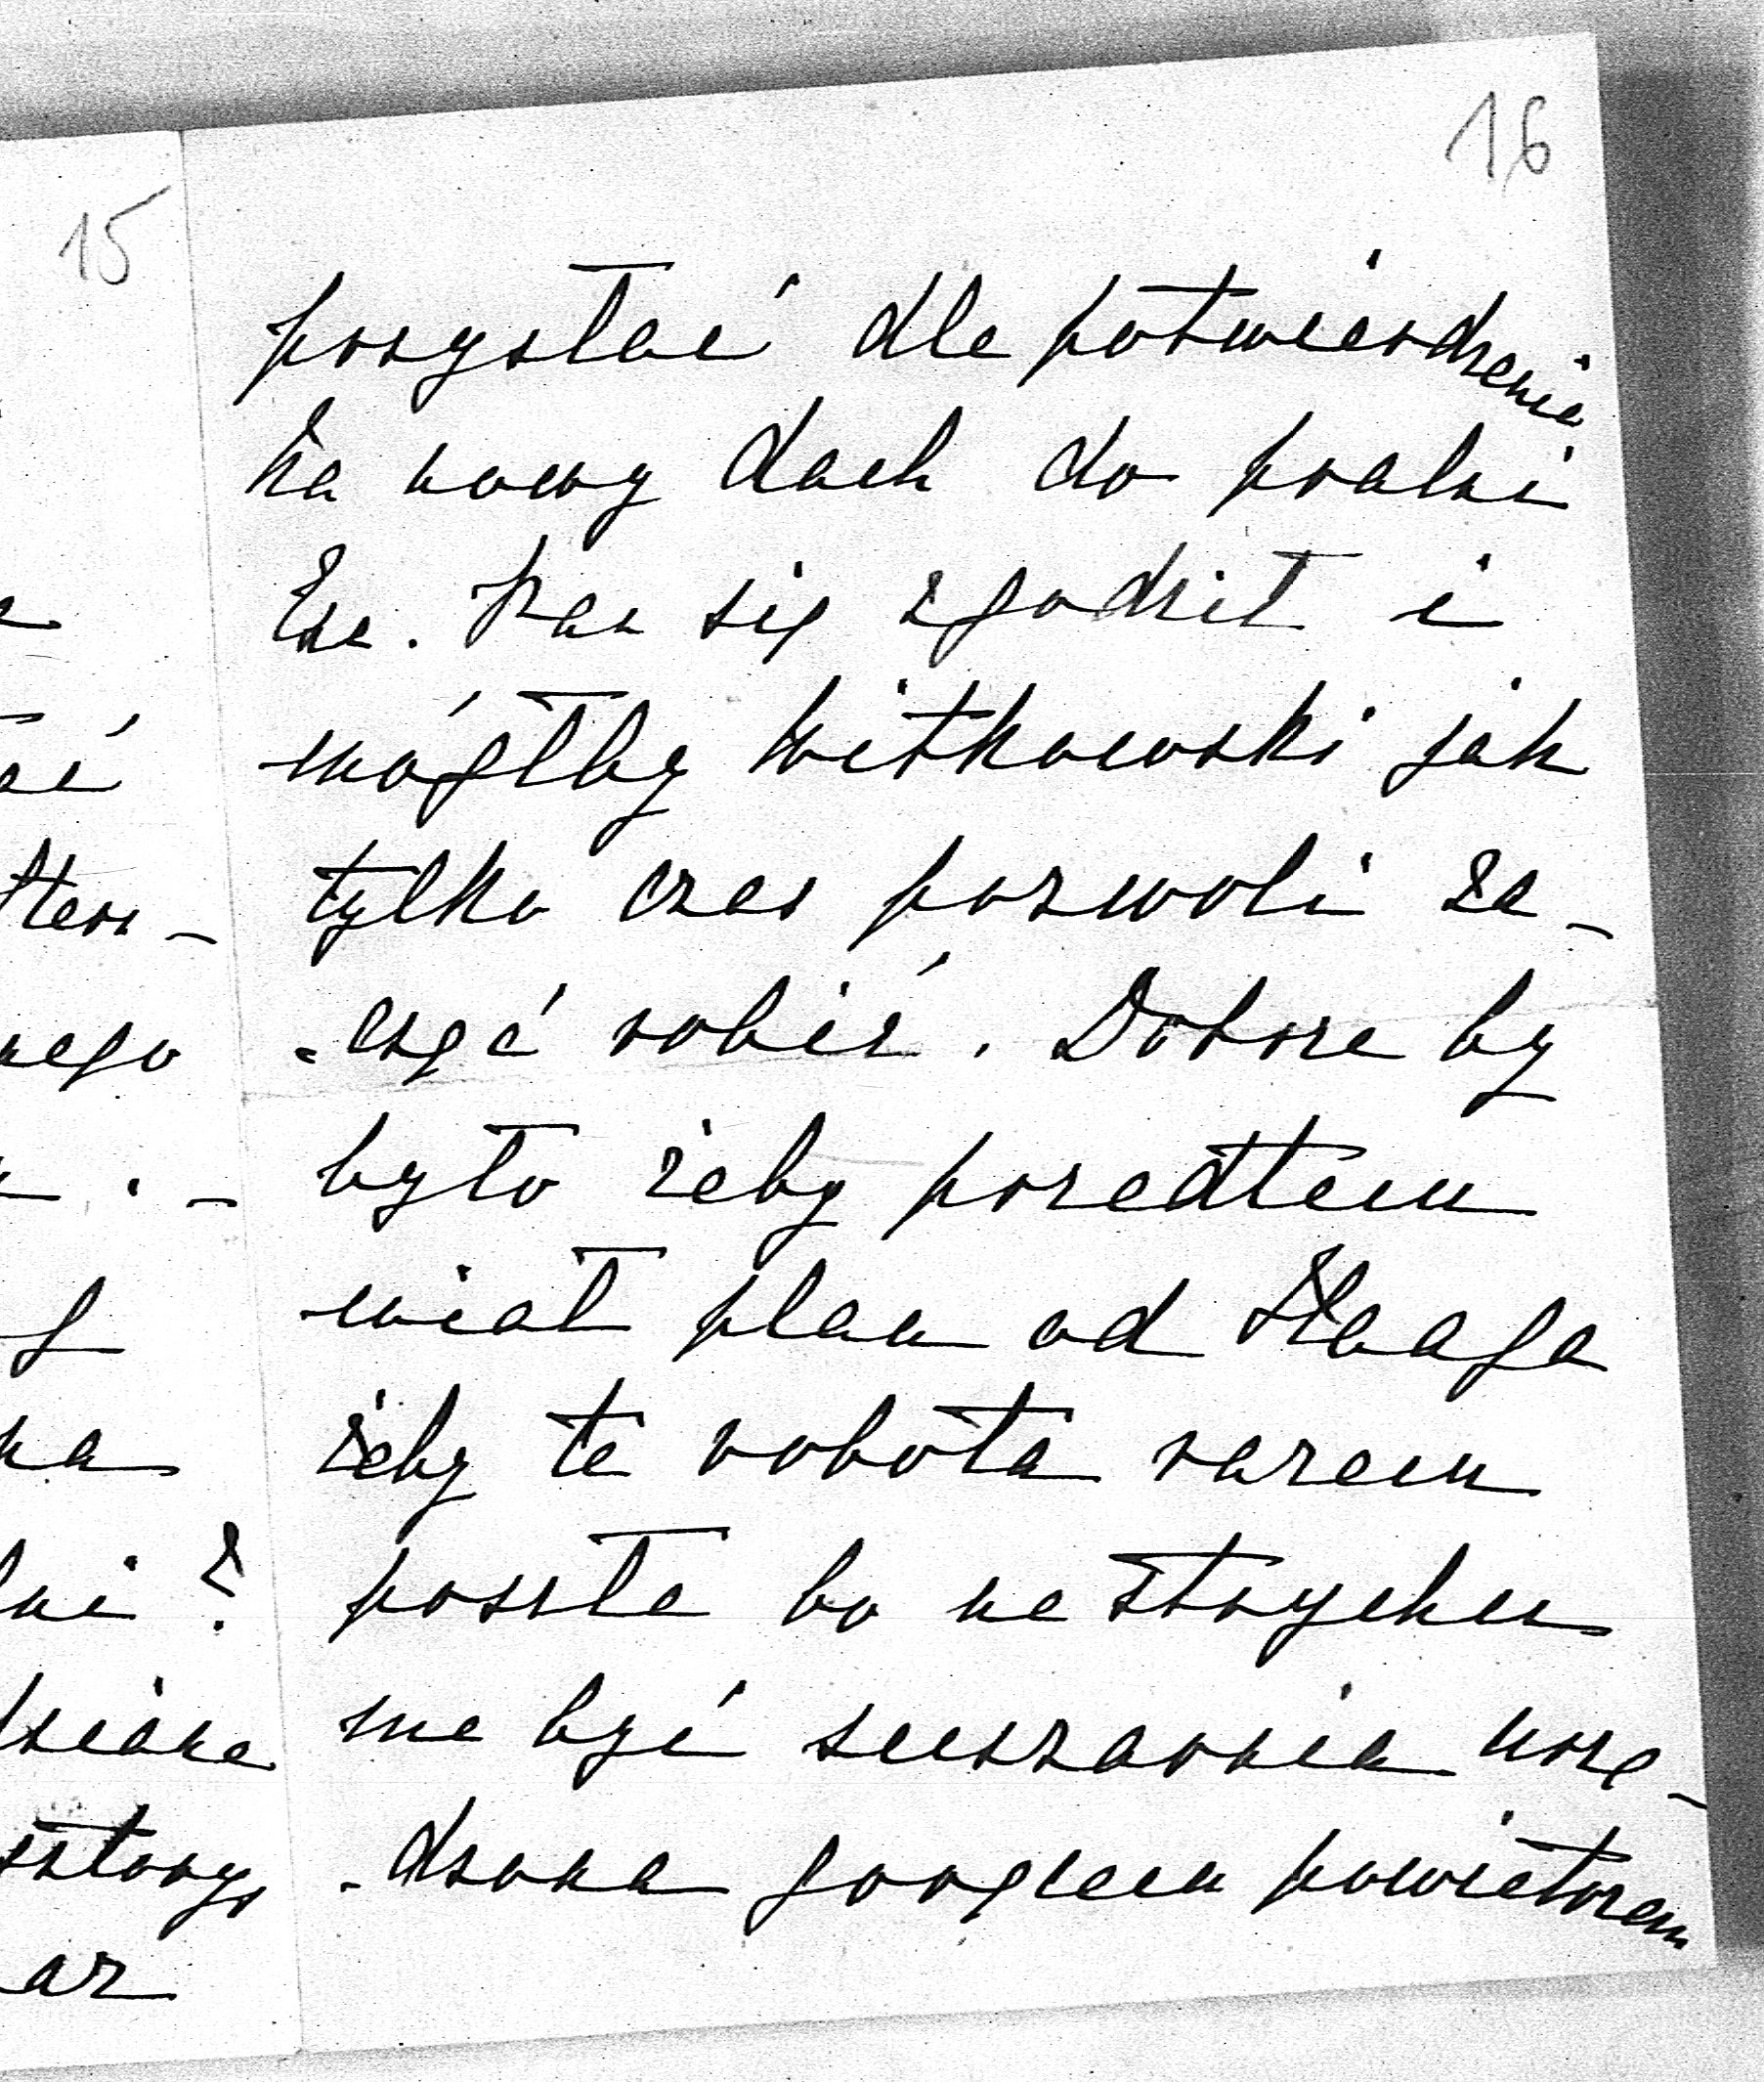 15
16
przysłać dla potwierdzenia
Na nowy dach do pralni
Exc. Pan się zgodził i
mógłby Witkowski jak
tylko czas pozwoli za-
-cząć robić. Dobrze by
było żeby przedtem
miał plan od Haaga
żeby ta robota razem
poszła bo na strychu
ma być suszarnia urzą-
-dzona gorącem powietrzem